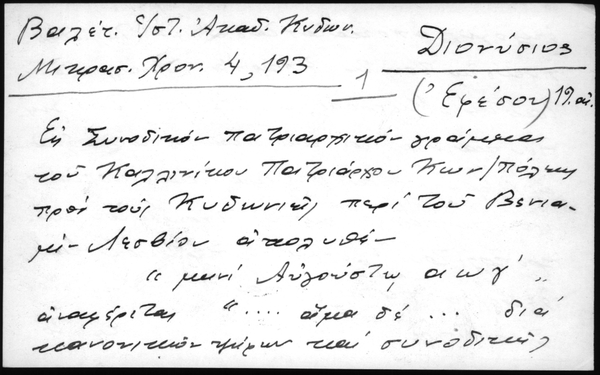 Βαλέτ. Ἱστ. Ἀκαδ. Κυδων.
Μικρασ. Χρον. 4, 193
Διονύσιος
1
(Ἐφέσου) 19. αἰ.
Εἰς Συνοδικόν πατριαρχικόν γράμμα
τοῦ Καλλινίκου Πατριάρχου Κων/πόλεως
πρός τούς Κυδωνιεῖς περί τοῦ Βενια-
μίν Λεσβίου ἀπολυθέν
"μηνί Αὐγούστῳ αωγ΄"
ἀναφέρεται "... ἅμα δέ ... διά
κανονικῶν ψήφων καί συνοδικῆς